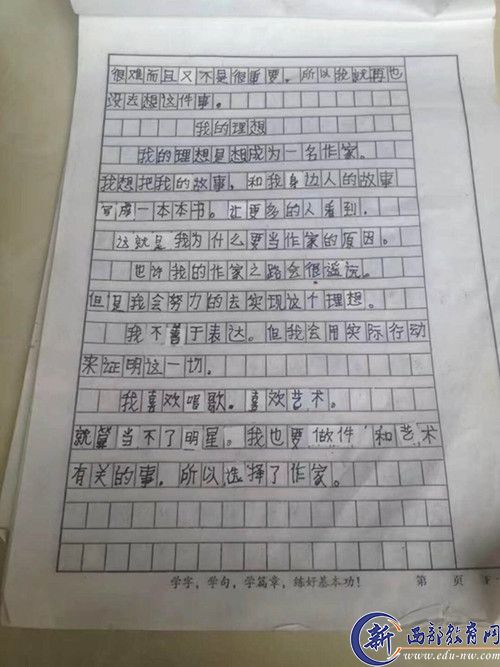 很难而且又不是很重要，所以我就再也
没去想这件事。
我的理想
我的理想是想成为一名作家。
我想把我的故事，和我身边人的故事
写成一本本书。让更多的人看到，
这就是我为什么要当作家的原因。
也许我的作家之路会很遥远。
但是我会努力的去实现这个理想。
我不善于表达。但我会用实际行动
来证明这一切。
我喜欢唱歌。喜欢艺术。
就算当不了明星。我也要做件和艺术
有关的事，所以选择了作家。
学字，学句，学篇章，练好基本功！
第 页
新 西部教育网
www.edu-nw.com